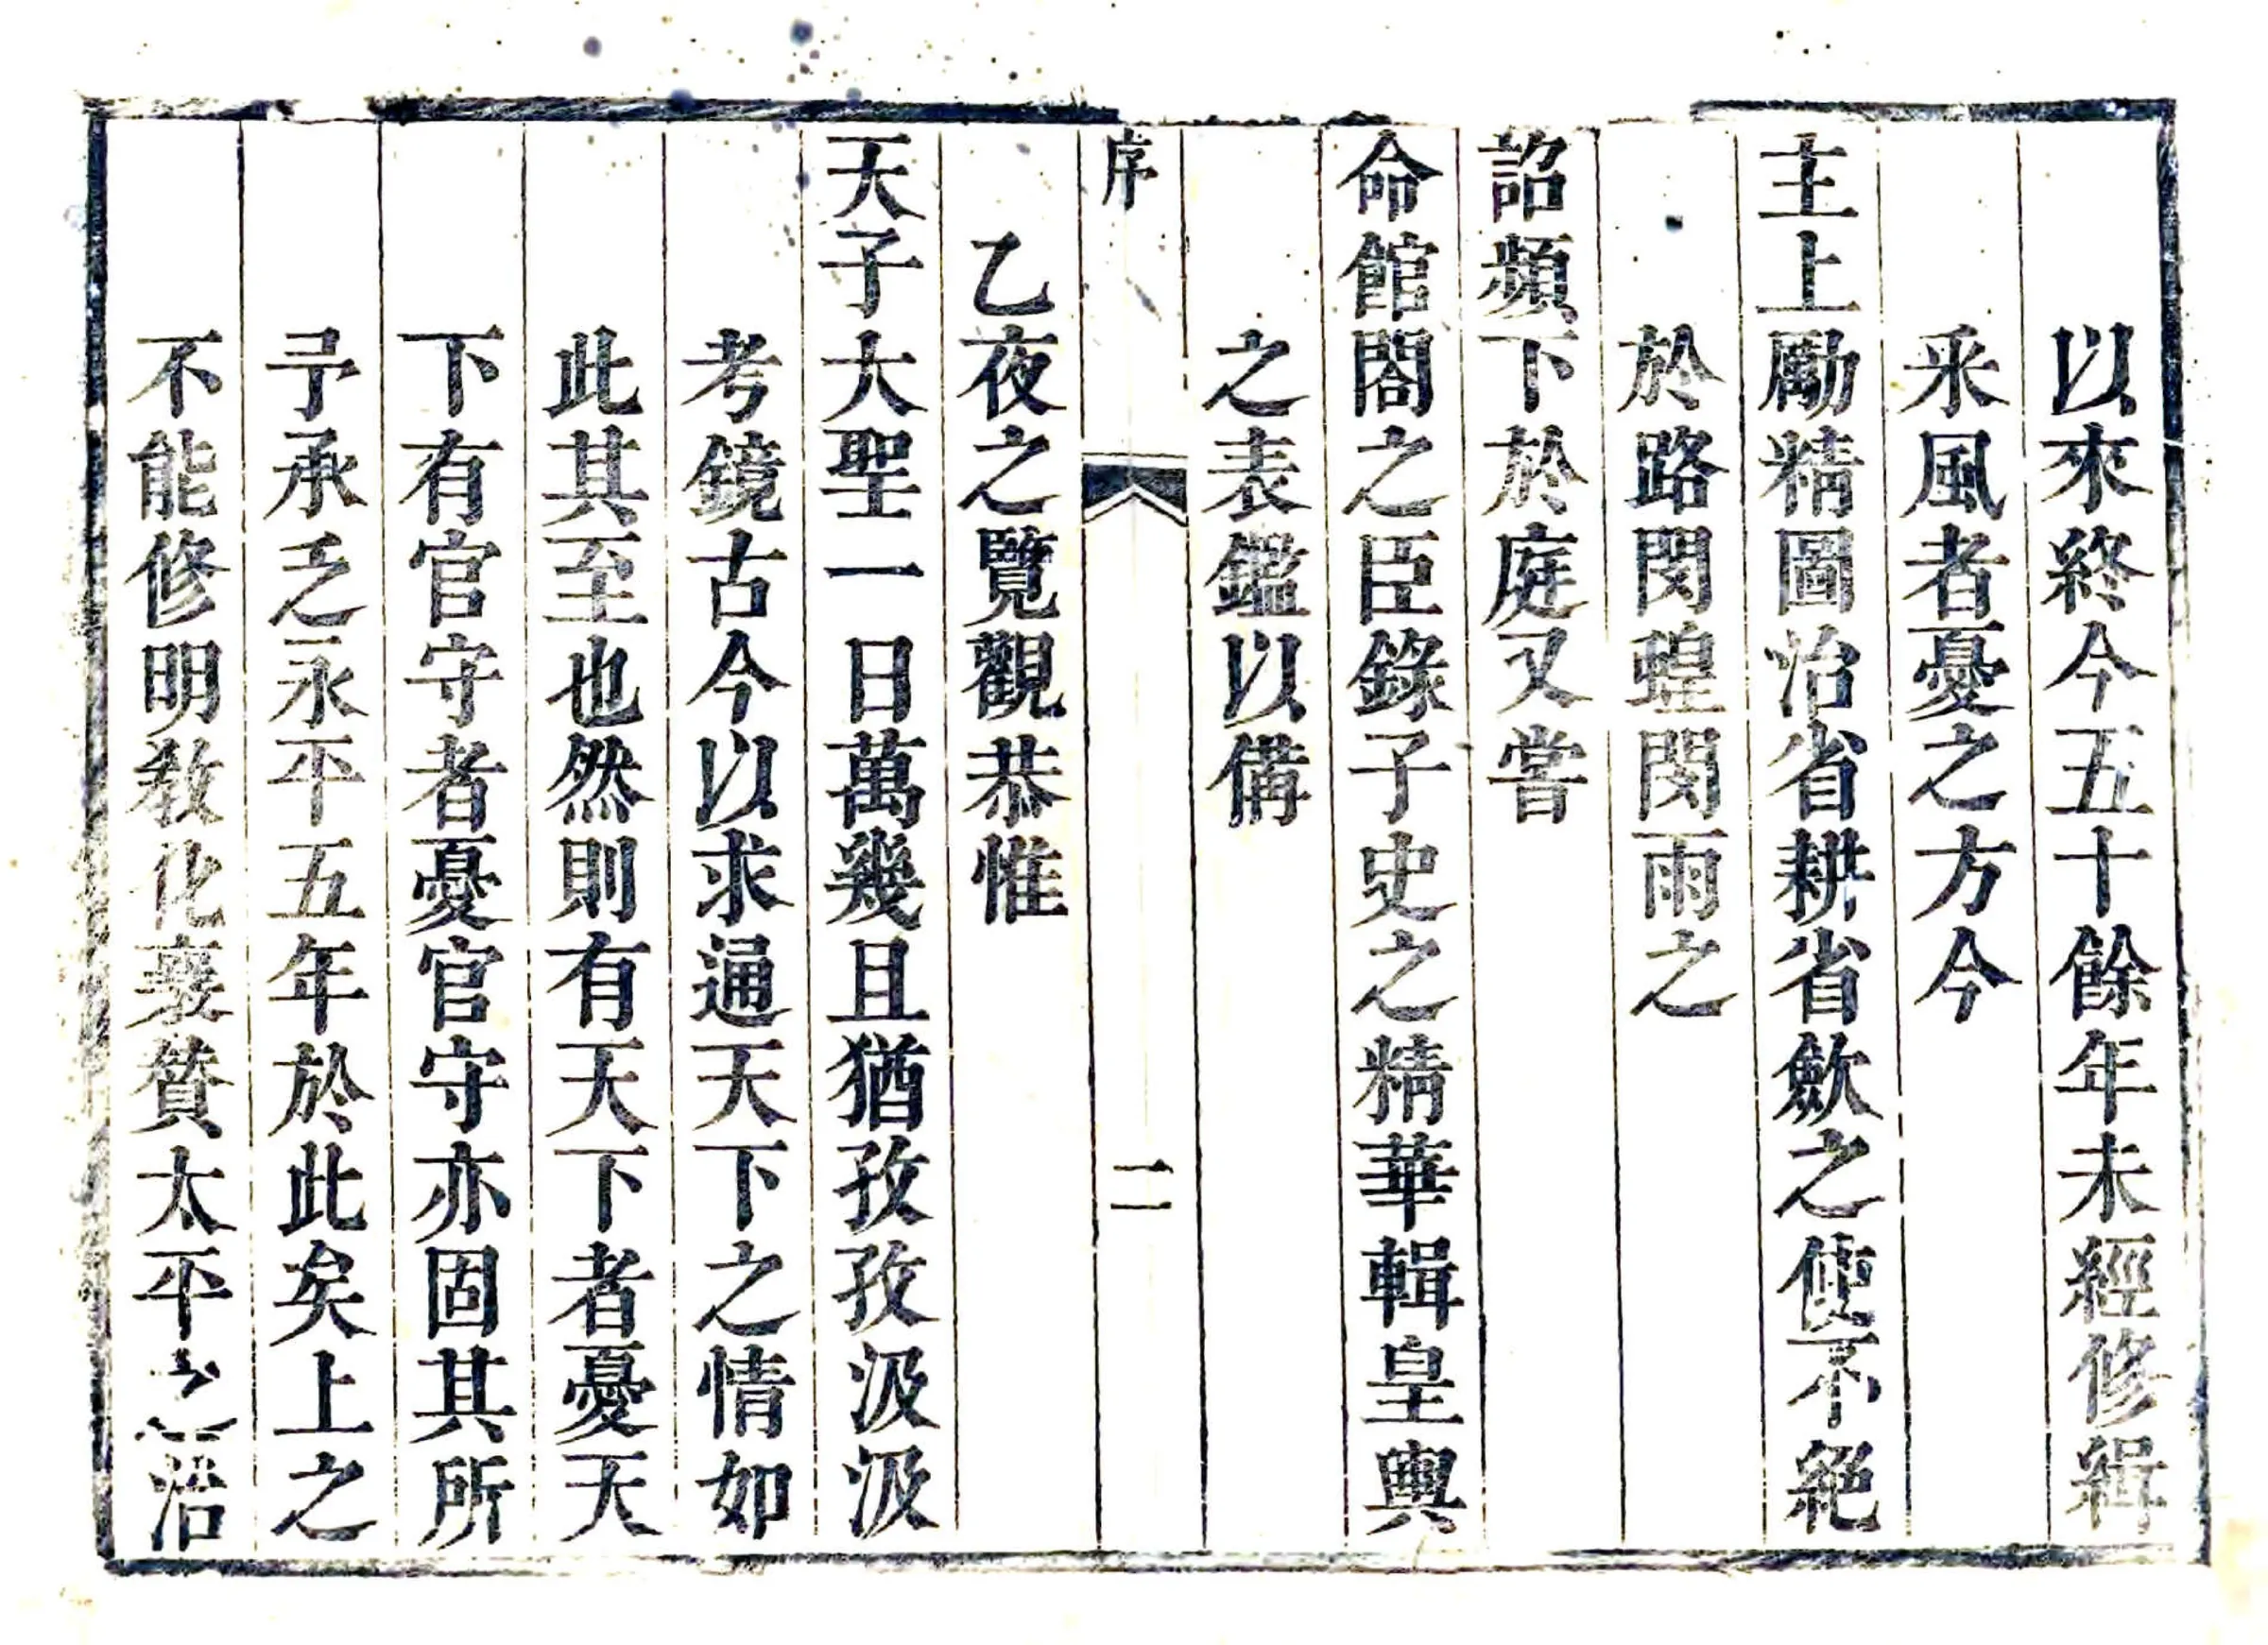 以來終今五十餘年未經修緝
采風者憂之方今
主上勵精圖治省耕省斂之使不絕
於路閔蝗閔雨之
詔頻下於庭又嘗
命館閣之臣錄子史之精華輯皇輿
之表鑑以備
序
二
乙夜之覽觀恭惟
天子大聖一日萬幾且猶孜孜汲汲
考鏡古今以求通天下之情如
此其至也然則有天下者憂天
下有官守者憂官守亦固其所
予承乏永平五年於此矣上之
不能修明敎化襄贊太平治